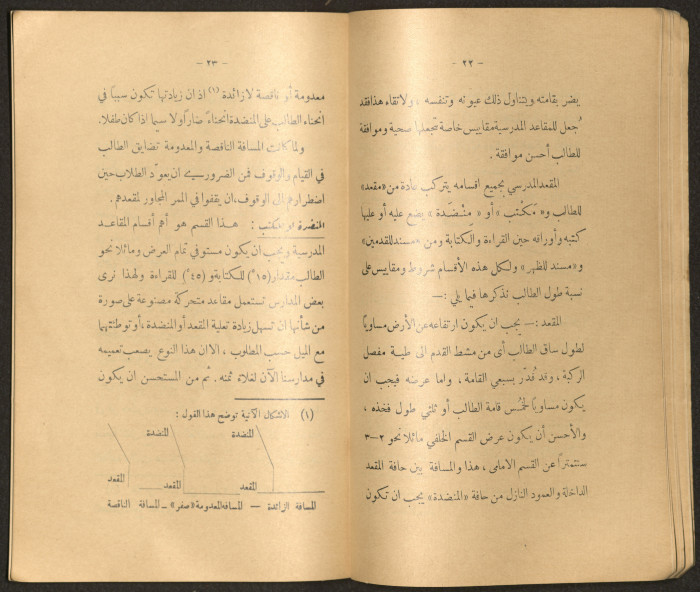 - ٢٢ -
يضر بقامته ويتناول ذلك عيونه وتنفسه ، ولاتقاء هذا فقد
جُعل للمقاعد المدرسية مقاييس خاصة تجعلها صحية وموافقة
للطالب أحسن موافقة .
المقعد المدرسي بجميع اقسامه يتركب عادة من «مقعد»
للطالب و« مَكْتب » أو « مِنْضدة » يضع عليه أو عليها
كتبه وأوراقه حين القراءة والكتابة ومن «مسند للقدمين»
و«مسند للظهر» ولكل هذه الأقسام شروط ومقاييس على
نسبة طول الطالب نذكرها فيما يلي :—
المقعد :— يجب ان يكون ارتفاعه عن الأرض مساوياً
لطول ساق الطالب أى من مشط القدم الى طية مفصل
الركبة ، وقد قُدّر بسبعي القامة ، واما عرضه فيجب ان
يكون مساوياً لخُمس قامة الطالب أو ثلثي طول فخذه ،
والأحسن أن يكون عرض القسم الخلفي مائلا نحو ٢—٣
سنتمتراً عن القسم الامامى ، هذا والمسافة بين حافة المقعد
الداخلة والعمود النازل من حافة «المنضدة» يجب ان تكون
- ٢٣ -
معدومة أو ناقصة لا زائدة (١) اذ ان زيادتها تكون سبباً في
انحناء الطالب على المنضدة انحناءً ضاراً ولا سيما اذا كان طفلا.
ولما كانت المسافة الناقصة والمعدومة تضايق الطالب
في القيام والوقوف فمن الضروري ان يعوّد الطلاب حين
اضطرارهم الى الوقوف، ان يقفوا في الممر المجاور لمقعدهم.
المنضدة او المكتب : هذا القسم هو أهم أقسام المقاعد
المدرسية ويجب ان يكون مستو في تمام العرض ومائلا نحو
الطالب مقدار (١٥°) للكتابة و (٤٥°) للقراءة ولهذا نرى
بعض المدارس تستعمل مقاعد متحركة مصنوعة على صورة
من شأنها ان تسهل زيادة تعلية المقعد أو المنضدة ، أو توطئتهما
مع الميل حسب المطلوب ، الا ان هذا النوع يصعب تعميمه
في مدارسنا الآن لغلاء ثمنه . ثم من المستحسن ان يكون
(١) الاشكال الآتية توضح هذا القول :
المنضدة
المنضدة
المقعد
المقعد
المقعد
المسافة الزائدة — المسافه المعدومة «صفر» ـ المسافة الناقصة